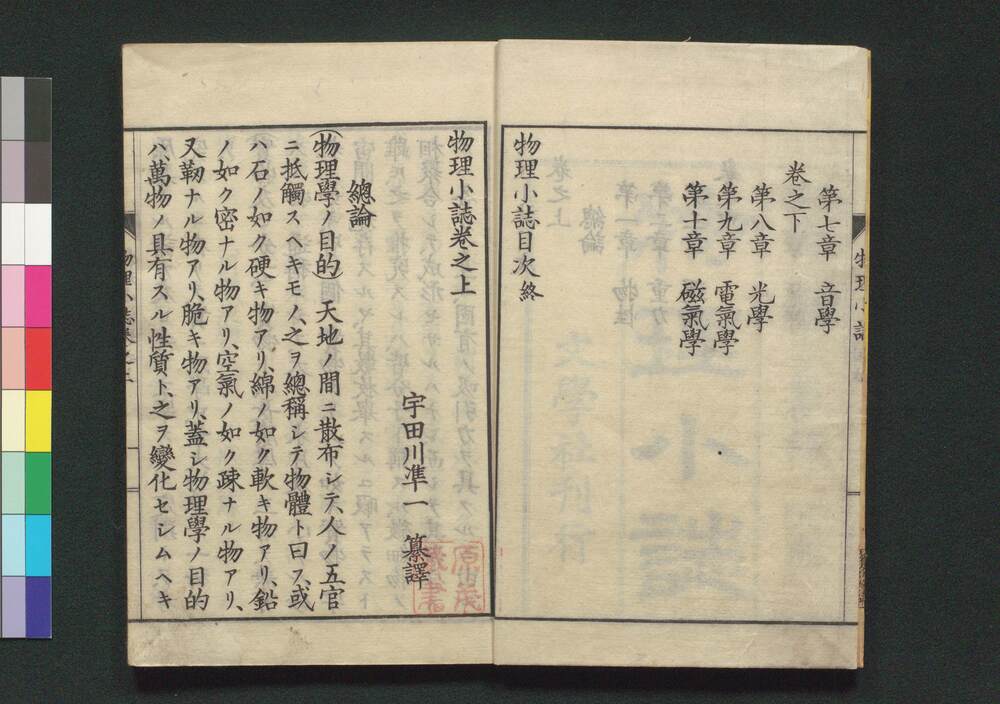 第七章　音學
卷之下
第八章　光學
第九章　電氣學
第十章　磁氣學
物理小誌目次終
物理小誌卷之上
宇田川準一　纂譯
總論
(物理學ノ目的)　天地ノ間ニ散布シテ、人ノ五官
ニ抵觸スヘキモノ、之ヲ總稱シテ物體ト曰フ、或
ハ石ノ如ク硬キ物アリ、綿ノ如ク軟キ物アリ、鉛
ノ如ク密ナル物アリ、空氣ノ如ク疎ナル物アリ、
又韌ナル物アリ、脆キ物アリ、蓋シ物理學ノ目的
ハ、萬物ノ具有スル性質ト、之ヲ變化セシムヘキ